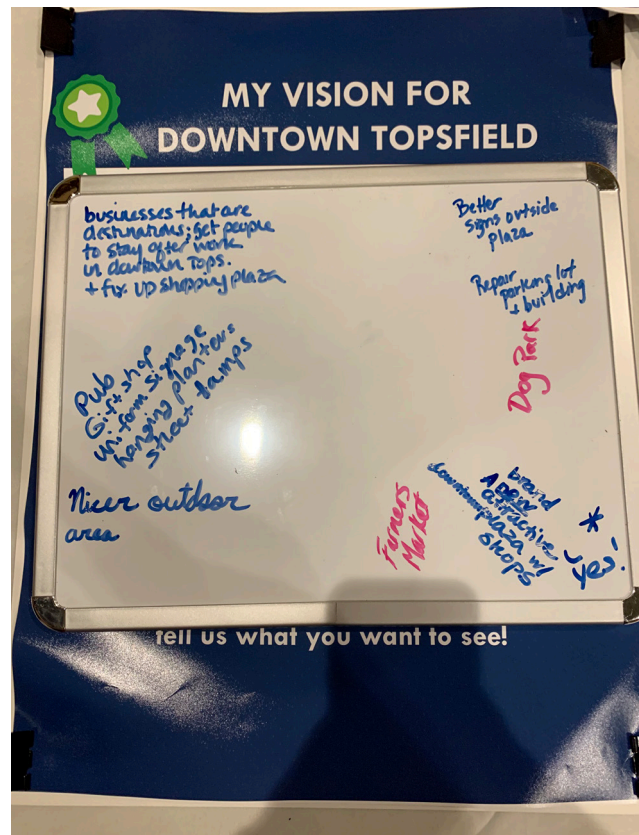 MY VISION FOR
DOWNTOWN TOPSFIELD
businesses that are
destinations; get people
to stay after work
in downtown Tops.
+ fix up shopping plaza
Better
signs outside
plaza
Repair
parking lot
+ building
Dog Park
Pub
Gift shop
uniform signage
hanging planters
street lamps
Nicer outdoor
area
Farmers
Market
A brand
new
attractive
downtown plaza w/
shops
* yes!
tell us what you want to see!